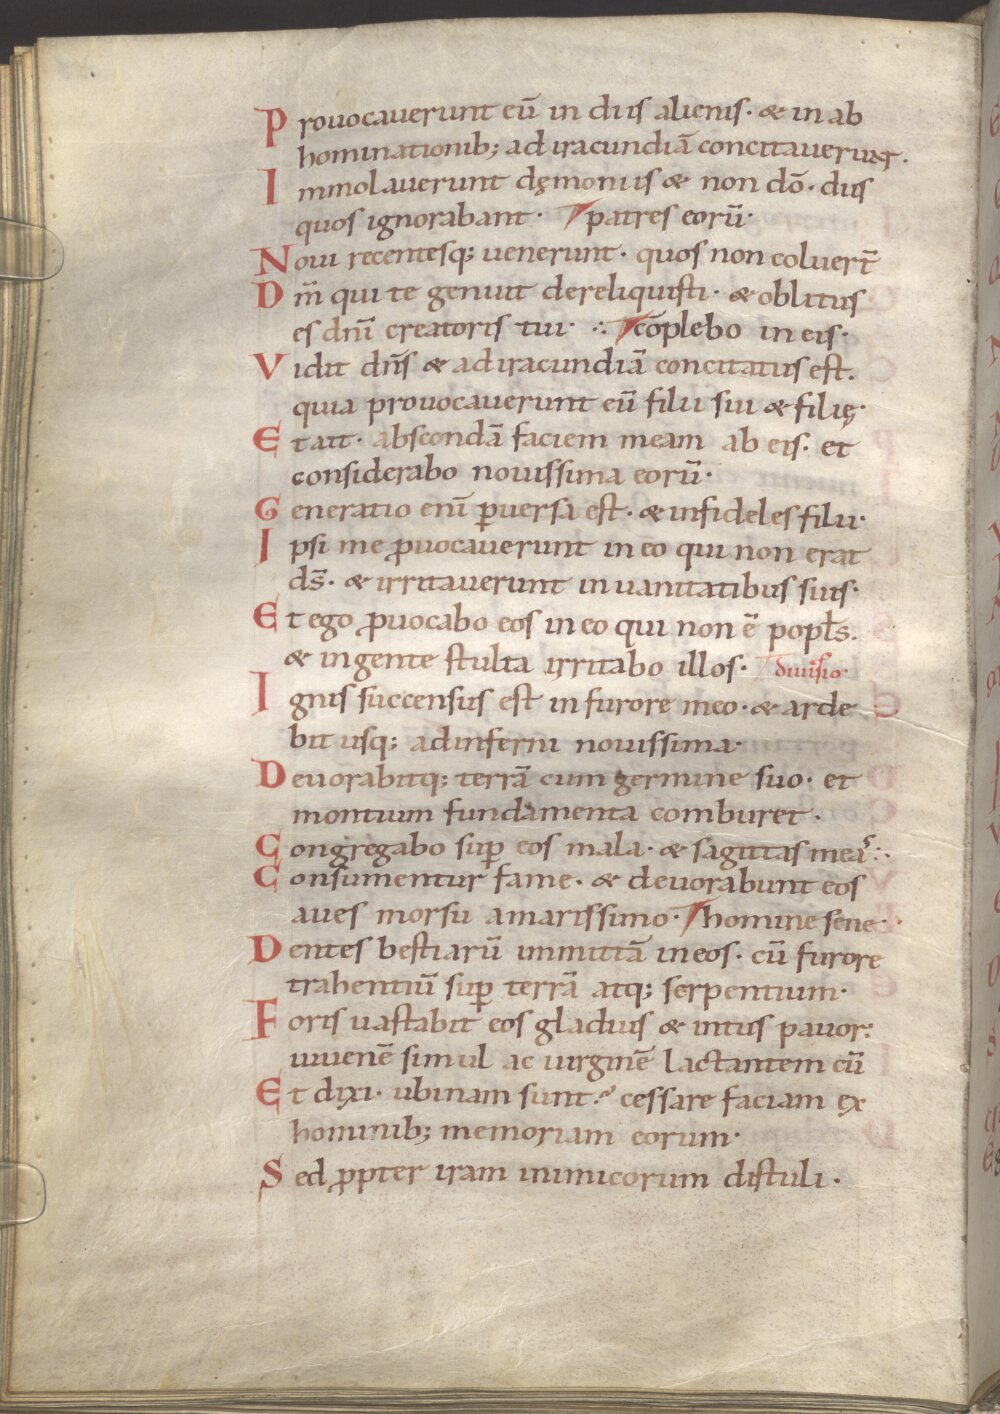 Prouocauerunt eū in diis alienis· & in ab
hominationib; ad iracundiā concitauerunt·
Immolauerunt dęmoniis & non dō· diis
quos ignorabant· patres eorū·
Noui recentesq; uenerunt· quos non coluert̄
Dm̄ qui te genuit dereliquisti· & oblitus
es dn̄i creatoris tui· cōplebo in eis·
Vidit dn̄s & ad iracundiā concitatus est.
quia prouocauerunt eū filii sui & filię·
Et ait· abscondā faciem meam ab eis· et
considerabo nouissima eorū·
Generatio eni̅ ꝑuersa est· & infideles filii·
Ipsi me ꝓuocauerunt in eo qui non erat
ds̄· & irritauerunt in uanitatibus suis·
Et ego ꝓuocabo eos in eo qui non ē popl̄s.
& in gente stulta irritabo illos· diuisio·
Ignis succensus est in furore meo· & arde
bit usq; ad inferni nouissima·
Deuorabitq; terrā cum germine suo· et
montium fundamenta comburet·
Congregabo suꝑ eos mala· & sagittas mea ͛ :·
Consumentur fame· & deuorabunt eos
aues morsu amarissimo· homine sene·
Dentes bestiarū immittā in eos· cū furore
trahentiū suꝑ terrā atq; serpentium·
Foris uastabit eos gladius & intus pauor:
iuuenē simul ac uirginē lactantem cū
Et dixi· ubinam sunt? cessare faciam ex
hominib; memoriam eorum·
Sed ꝓpter iram inimicorum distuli·